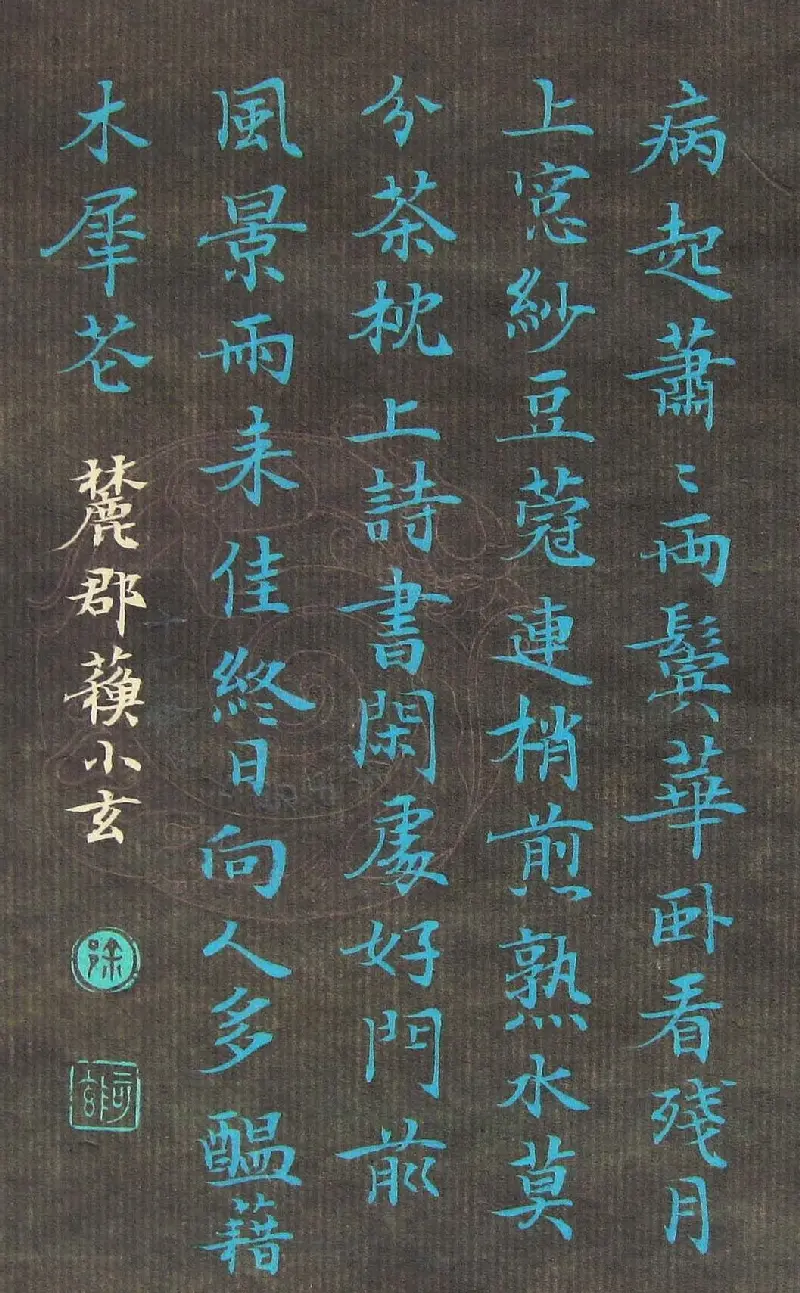 病起蕭〻兩鬢華卧看殘月
上窓紗豆蔻連梢煎熟水莫
分茶枕上詩書閑處好門前
風景雨来佳終日向人多醖藉
木犀花
麓郡蘋小玄